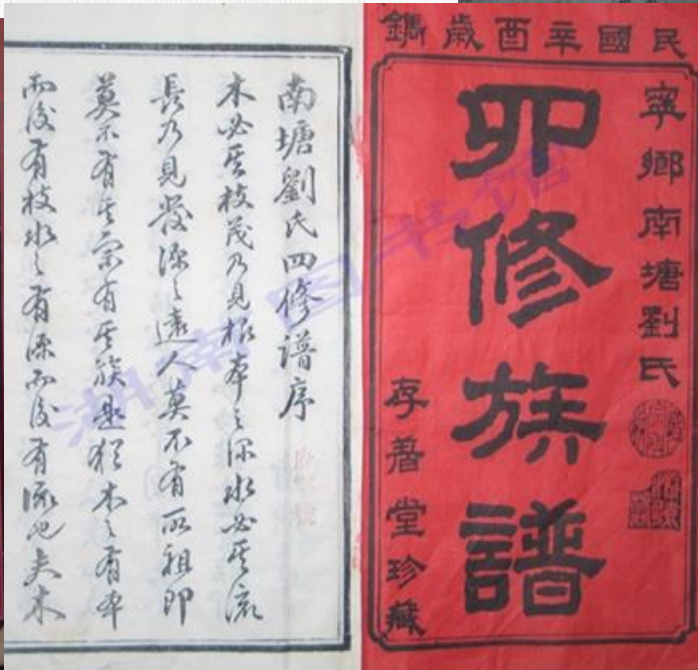 民國辛酉歲鐫
寧鄉南塘劉氏
四修族譜
存著堂珍藏
南塘劉氏四修譜序
木必其枝茂乃見根本之深水必其流
長乃見發源之遠人莫不有所祖即
莫不有其宗有其族是猶木之有本
而後有枝水之有源而後有流也夫木
湖南图书馆